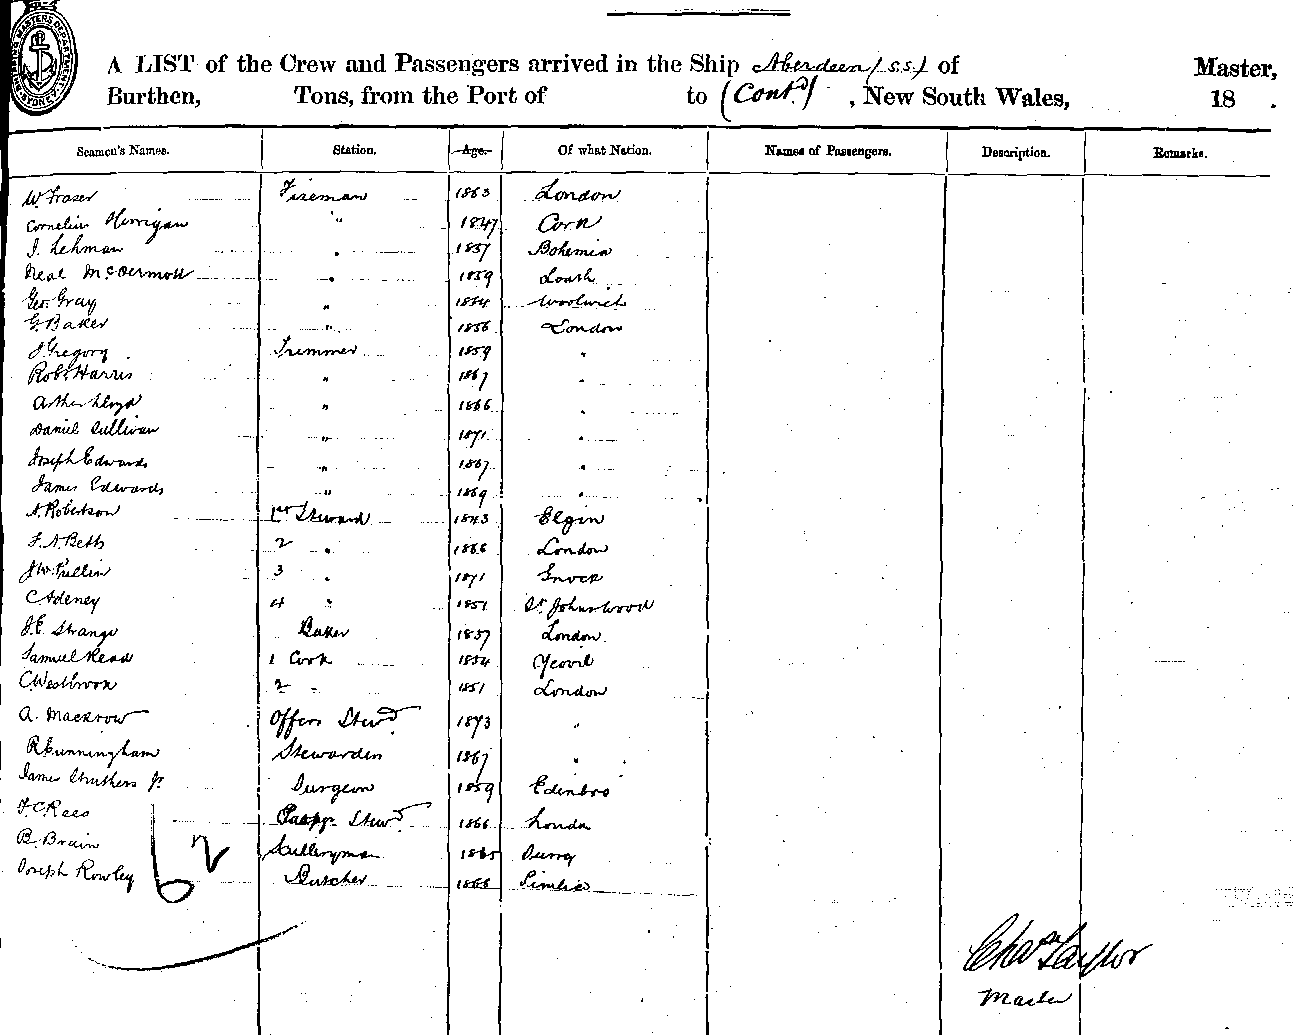 A LIST of the Crew and Passengers arrived in the Ship Aberdeen (s.s.) of Master,
Burthen, Tons, from the Port of to (Contd) , New South Wales, 18 .
Seamen's Names. Station. Age. Of what Nation. Names of Passengers. Description. Remarks.
W. Fraser Fireman 1863 London
Cornelius Horrigan " 1847 Cork
J. Lehman " 1857 Bohemia
Neal McDermott " 1859 Louth
Geo. Gray " 1854 Woolwich
G. Baker " 1856 London
J Gregory Trimmer 1859 "
Robt Harris " 1867 "
Arthur Lloyd " 1866 "
Daniel Sullivan " 1871 "
Joseph Edwards " 1867 "
James Edwards " 1869 "
A. Robertson 1st Steward 1843 Elgin
F. A. Betts 2 " 1866 London
J.W. Pullin 3 " 1871
C Adeney 4 " 1851 St Johns Wood
J.E. Strange Baker 1857 London
Samuel Read 1 Cook 1854 Yeovil
C. Westbrook 2 " 1851 London
A. Mackrow Officers Stewd 1873 "
R Cunningham Stewardess 1867 "
James Struthers Jr Surgeon 1859 Edinbro
F. C. Rees Stewd 1866 London
B. Brain Sculleryman 1865 Surrey
Joseph Rowley Butcher 1866 Pimlico
62
Chas Taylor
Master